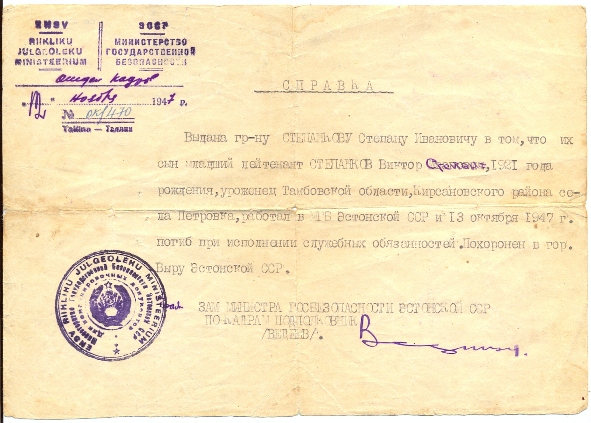 ENSV
RIIKLIKU
JULGEOLEKU
MINISTEERIUM
ЭССР
МИНИСТЕРСТВО
ГОСУДАРСТВЕННОЙ
БЕЗОПАСНОСТИ
Отдел кадров
"12" ноября 1947 г.
№ ок/470
Tallinn — Таллин
СПРАВКА
Выдана гр-ну СТЕПАНКОВУ Степану Ивановичу в том, что их
сын младший лейтенант СТЕПАНКОВ Виктор 1921 года
рождения, уроженец Тамбовской области, Кирсановского района се-
ла Петровка, работал в МГБ Эстонской ССР и 13 октября 1947 г.
погиб при исполнении служебных обязанностей. Похоронен в гор.
Выру Эстонской ССР.
ЗАМ МИНИСТРА ГОСБЕЗОПАСНОСТИ ЭСТОНСКОЙ ССР
ПО КАДРАМ ПОДПОЛКОВНИК
ENSV RIIKLIKU JULGEOLEKU MINISTEERIUM